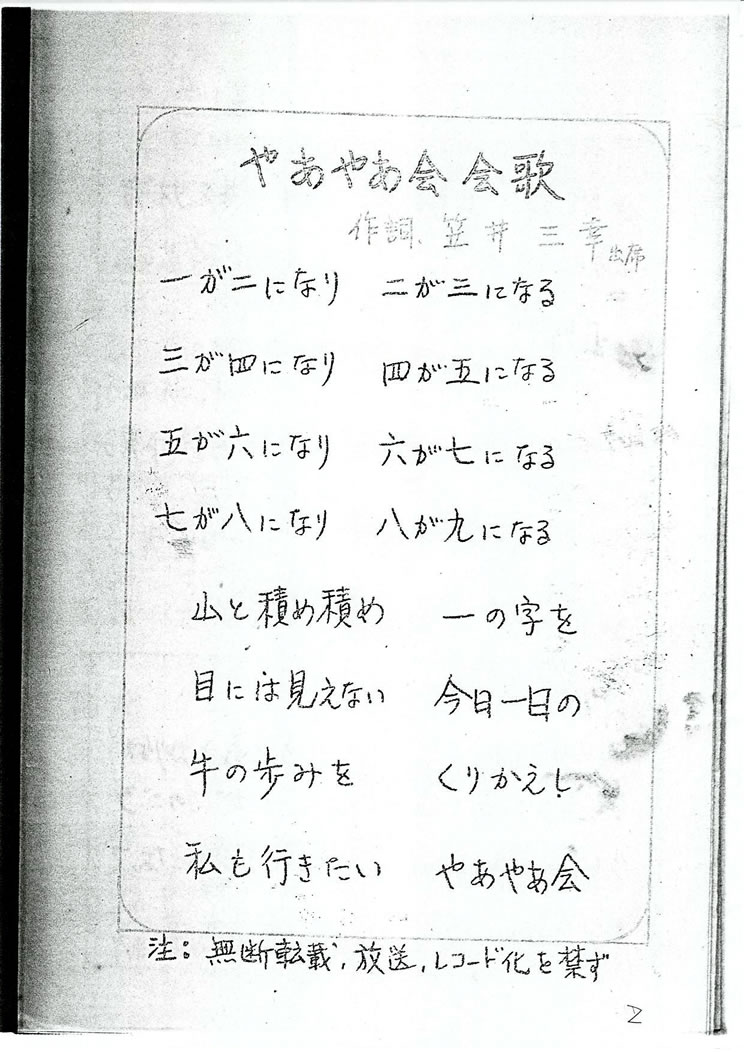 やあやあ会 会歌
作詞、笠井三幸
出席
一が二になり 二が三になる
三が四になり 四が五になる
五が六になり 六が七になる
七が八になり 八が九になる
山と積め積め 一の字を
目には見えない 今日一日の
牛の歩みを くりかえし
私も行きたい やあやあ会
注：無断転載，放送，レコード化を禁ず
2